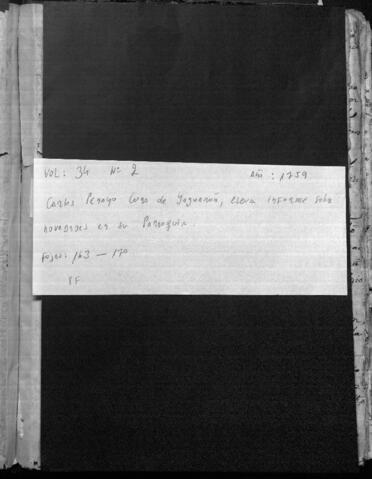 VOL: 34 Nº 2 Año: 1759
Carlos Penayo Cura de Yaguarón, eleva informe sobre
novedades en su Parroquia.
Fojas: 163 — 170